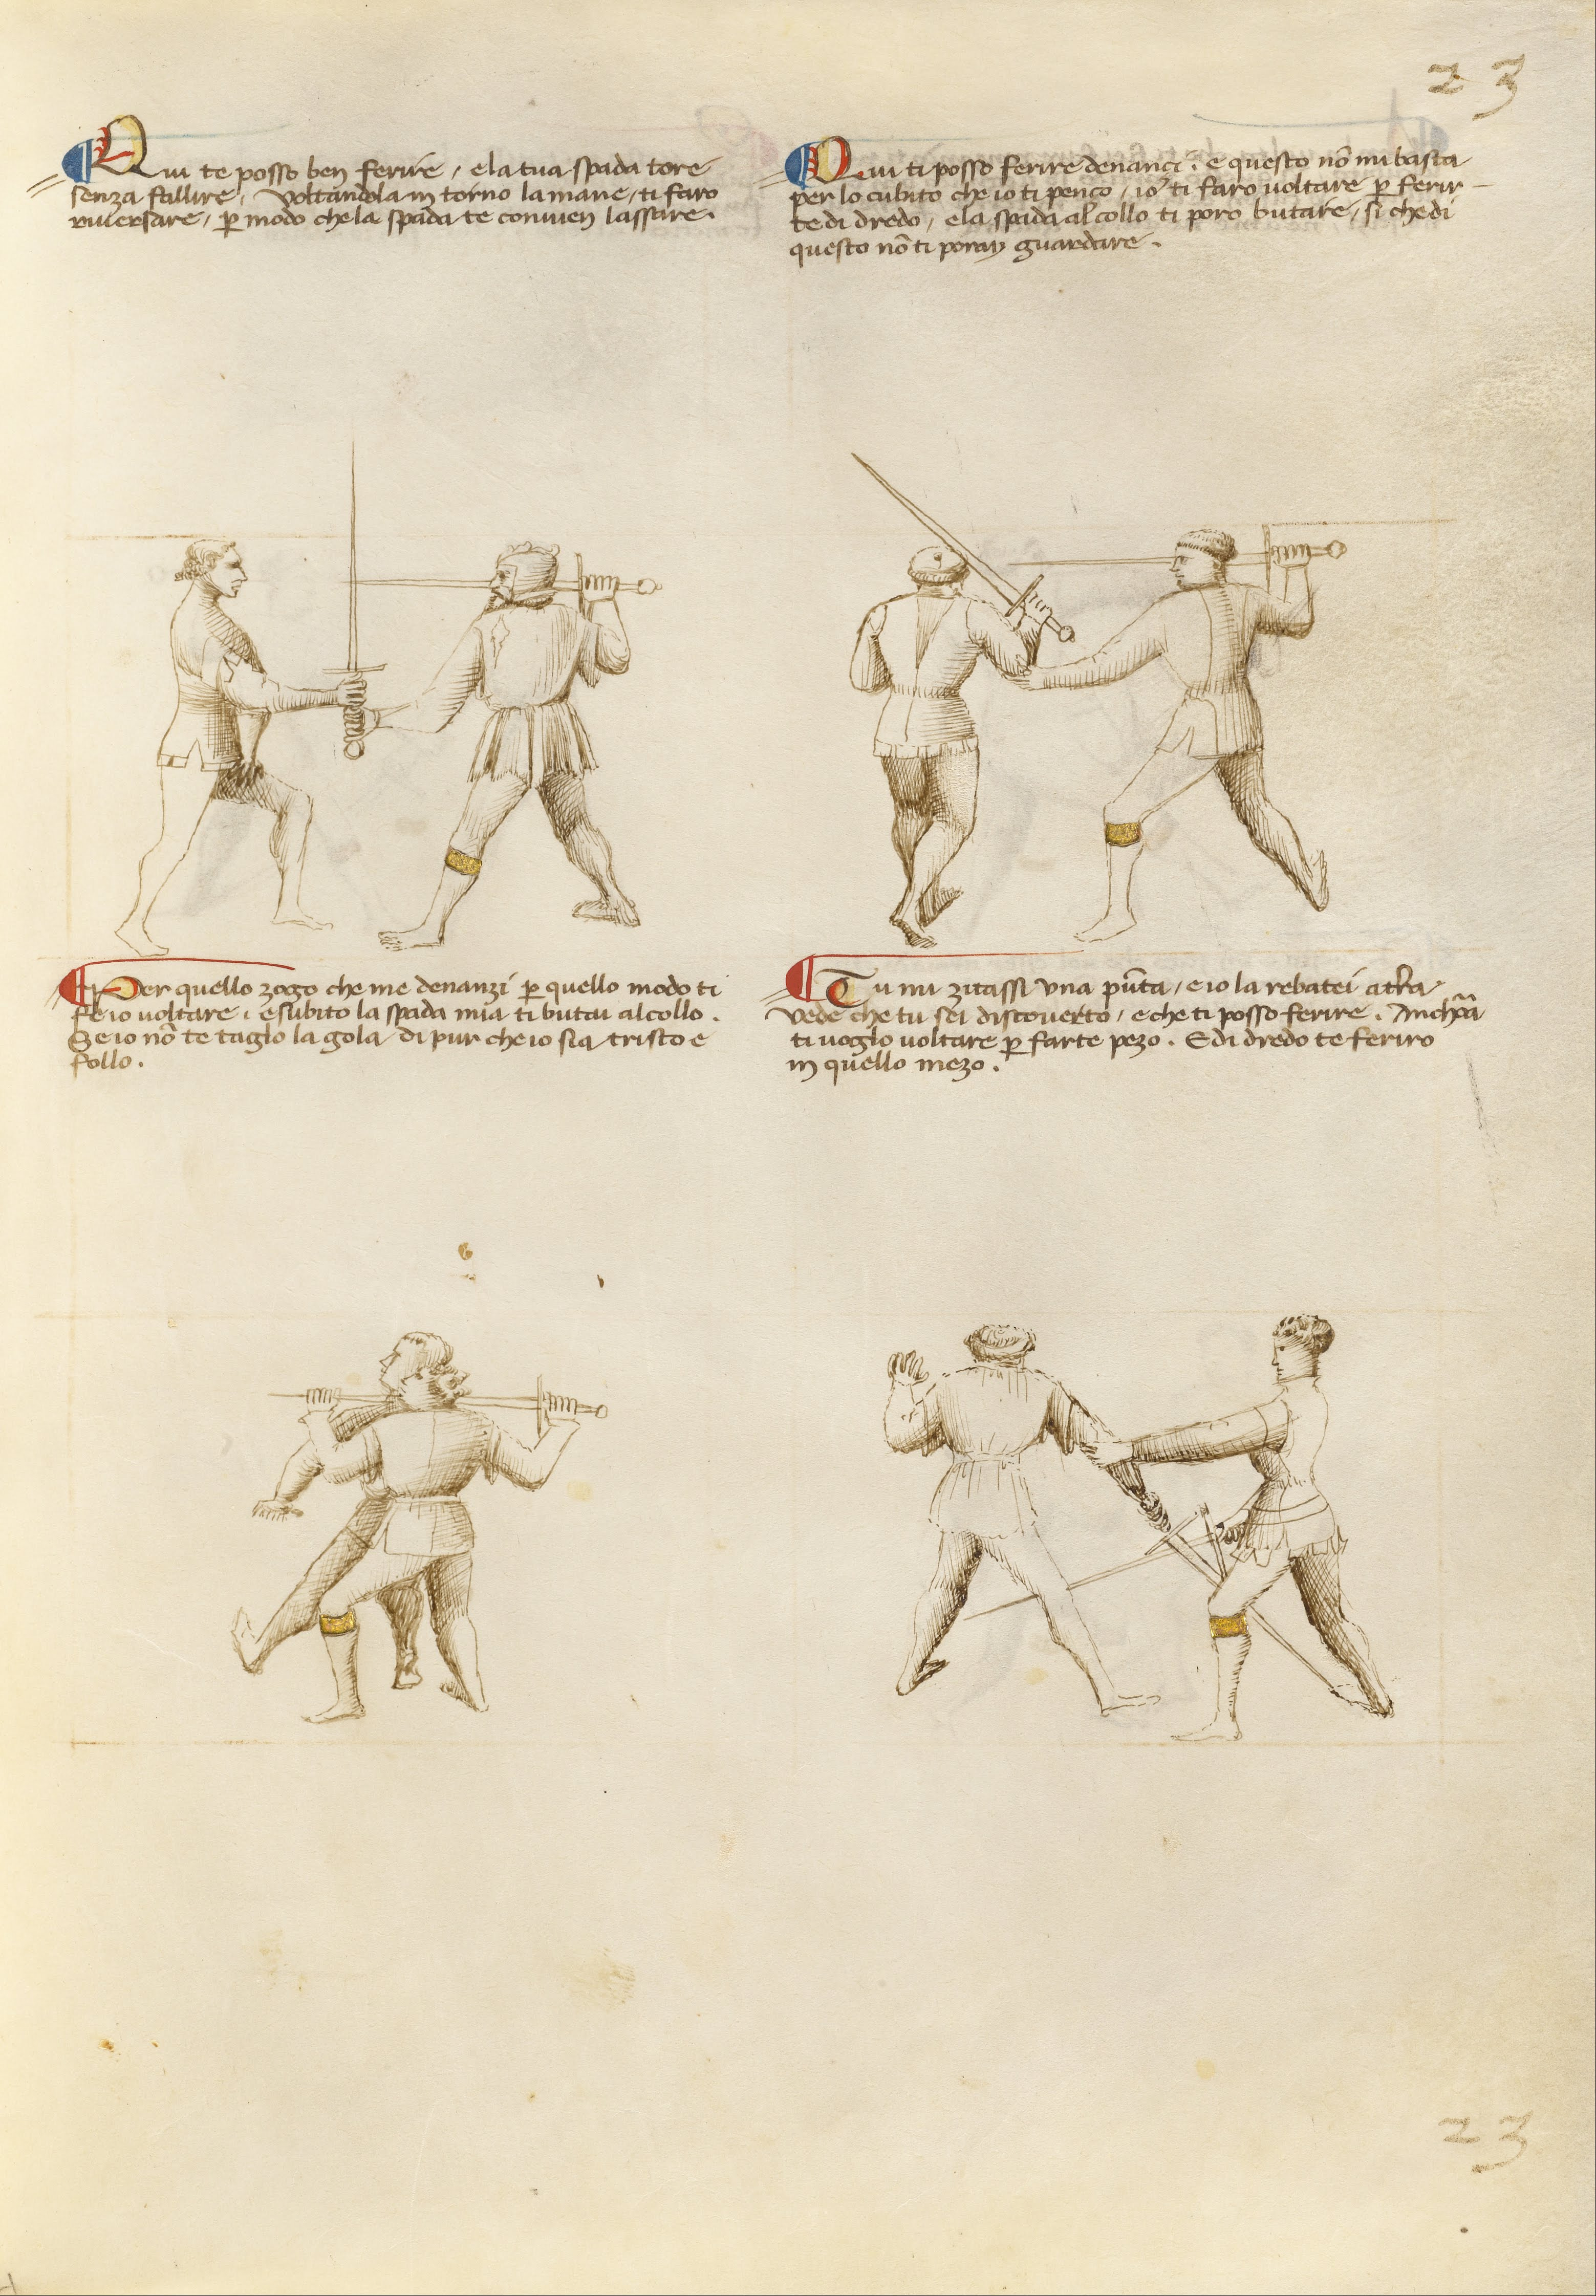 23
Qui te posso ben ferire / e la tua spada tore
senza fallire / Voltandola in torno la mane / ti faro
riversare / ꝑ modo che la spada te convien lassare.
Qui ti posso ferire denanci . e questo nõ mi basta
per lo cubito che io ti penço / io ti faro voltare ꝑ ferir –
te di dredo / e la spada al collo ti poro butare / si che di
questo nõ ti poray guardare .
Per quello zogo che me denanzi ꝑ quello modo ti
fe io voltare : e subito la spada mia ti butai al collo .
Se io nõ te taglo la gola / di pur che io sia tristo e
follo .
Tu mi zitassi una pũta / e io la rebatei a trã
Vede che tu sei discoverto / e che ti posso ferire .
ti voglo voltare ꝑ farte pezo . E di dredo te feriro
in quello mezo .
23